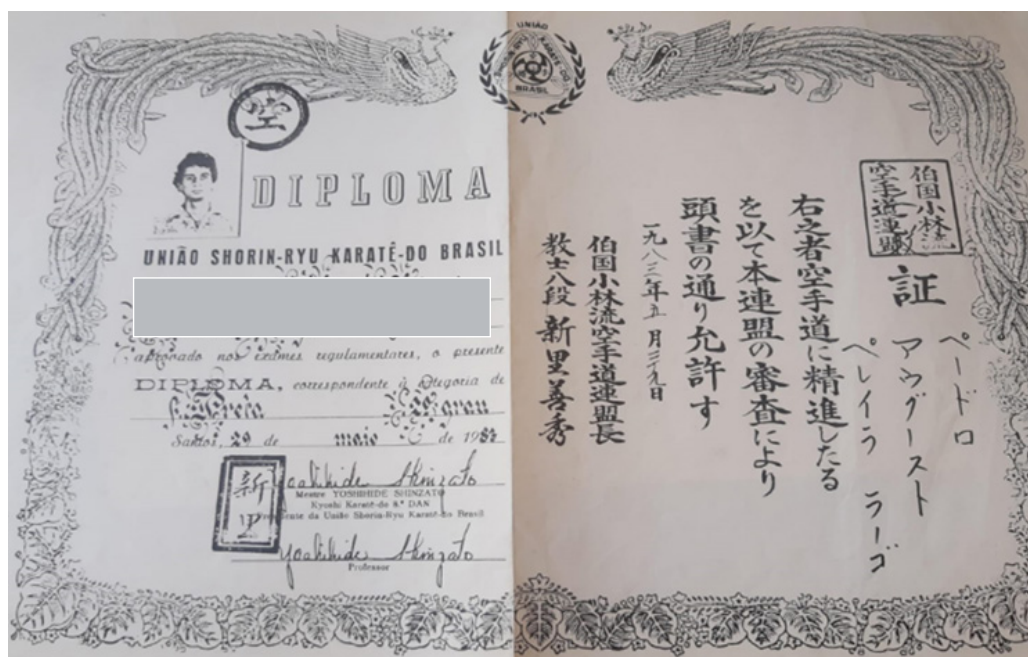 UNIÃO
SHORIN-RYU KARATE-DO
BRASIL
空
DIPLOMA
UNIÃO SHORIN-RYU KARATÊ-DO BRASIL
aprovado nos exames regulamentares, o presente
DIPLOMA, correspondente à categoria de
Santos, 29 de maio de 1983
新里
Yoshihide Shinzato
Mestre YOSHIHIDE SHINZATO
Kyoshi Karatê-do 8.º DAN
Presidente da União Shorin-Ryu Karatê-Do Brasil
Yoshihide Shinzato
Professor
伯国小林流
空手道連盟
証
ペードロ
アウグースト
ペレイラ ラーゴ
右之者空手道に精進したる
を以て本連盟の審査により
頭書の通り允許す
一九八三年五月
伯国小林流空手道連盟長
教士八段 新里善秀